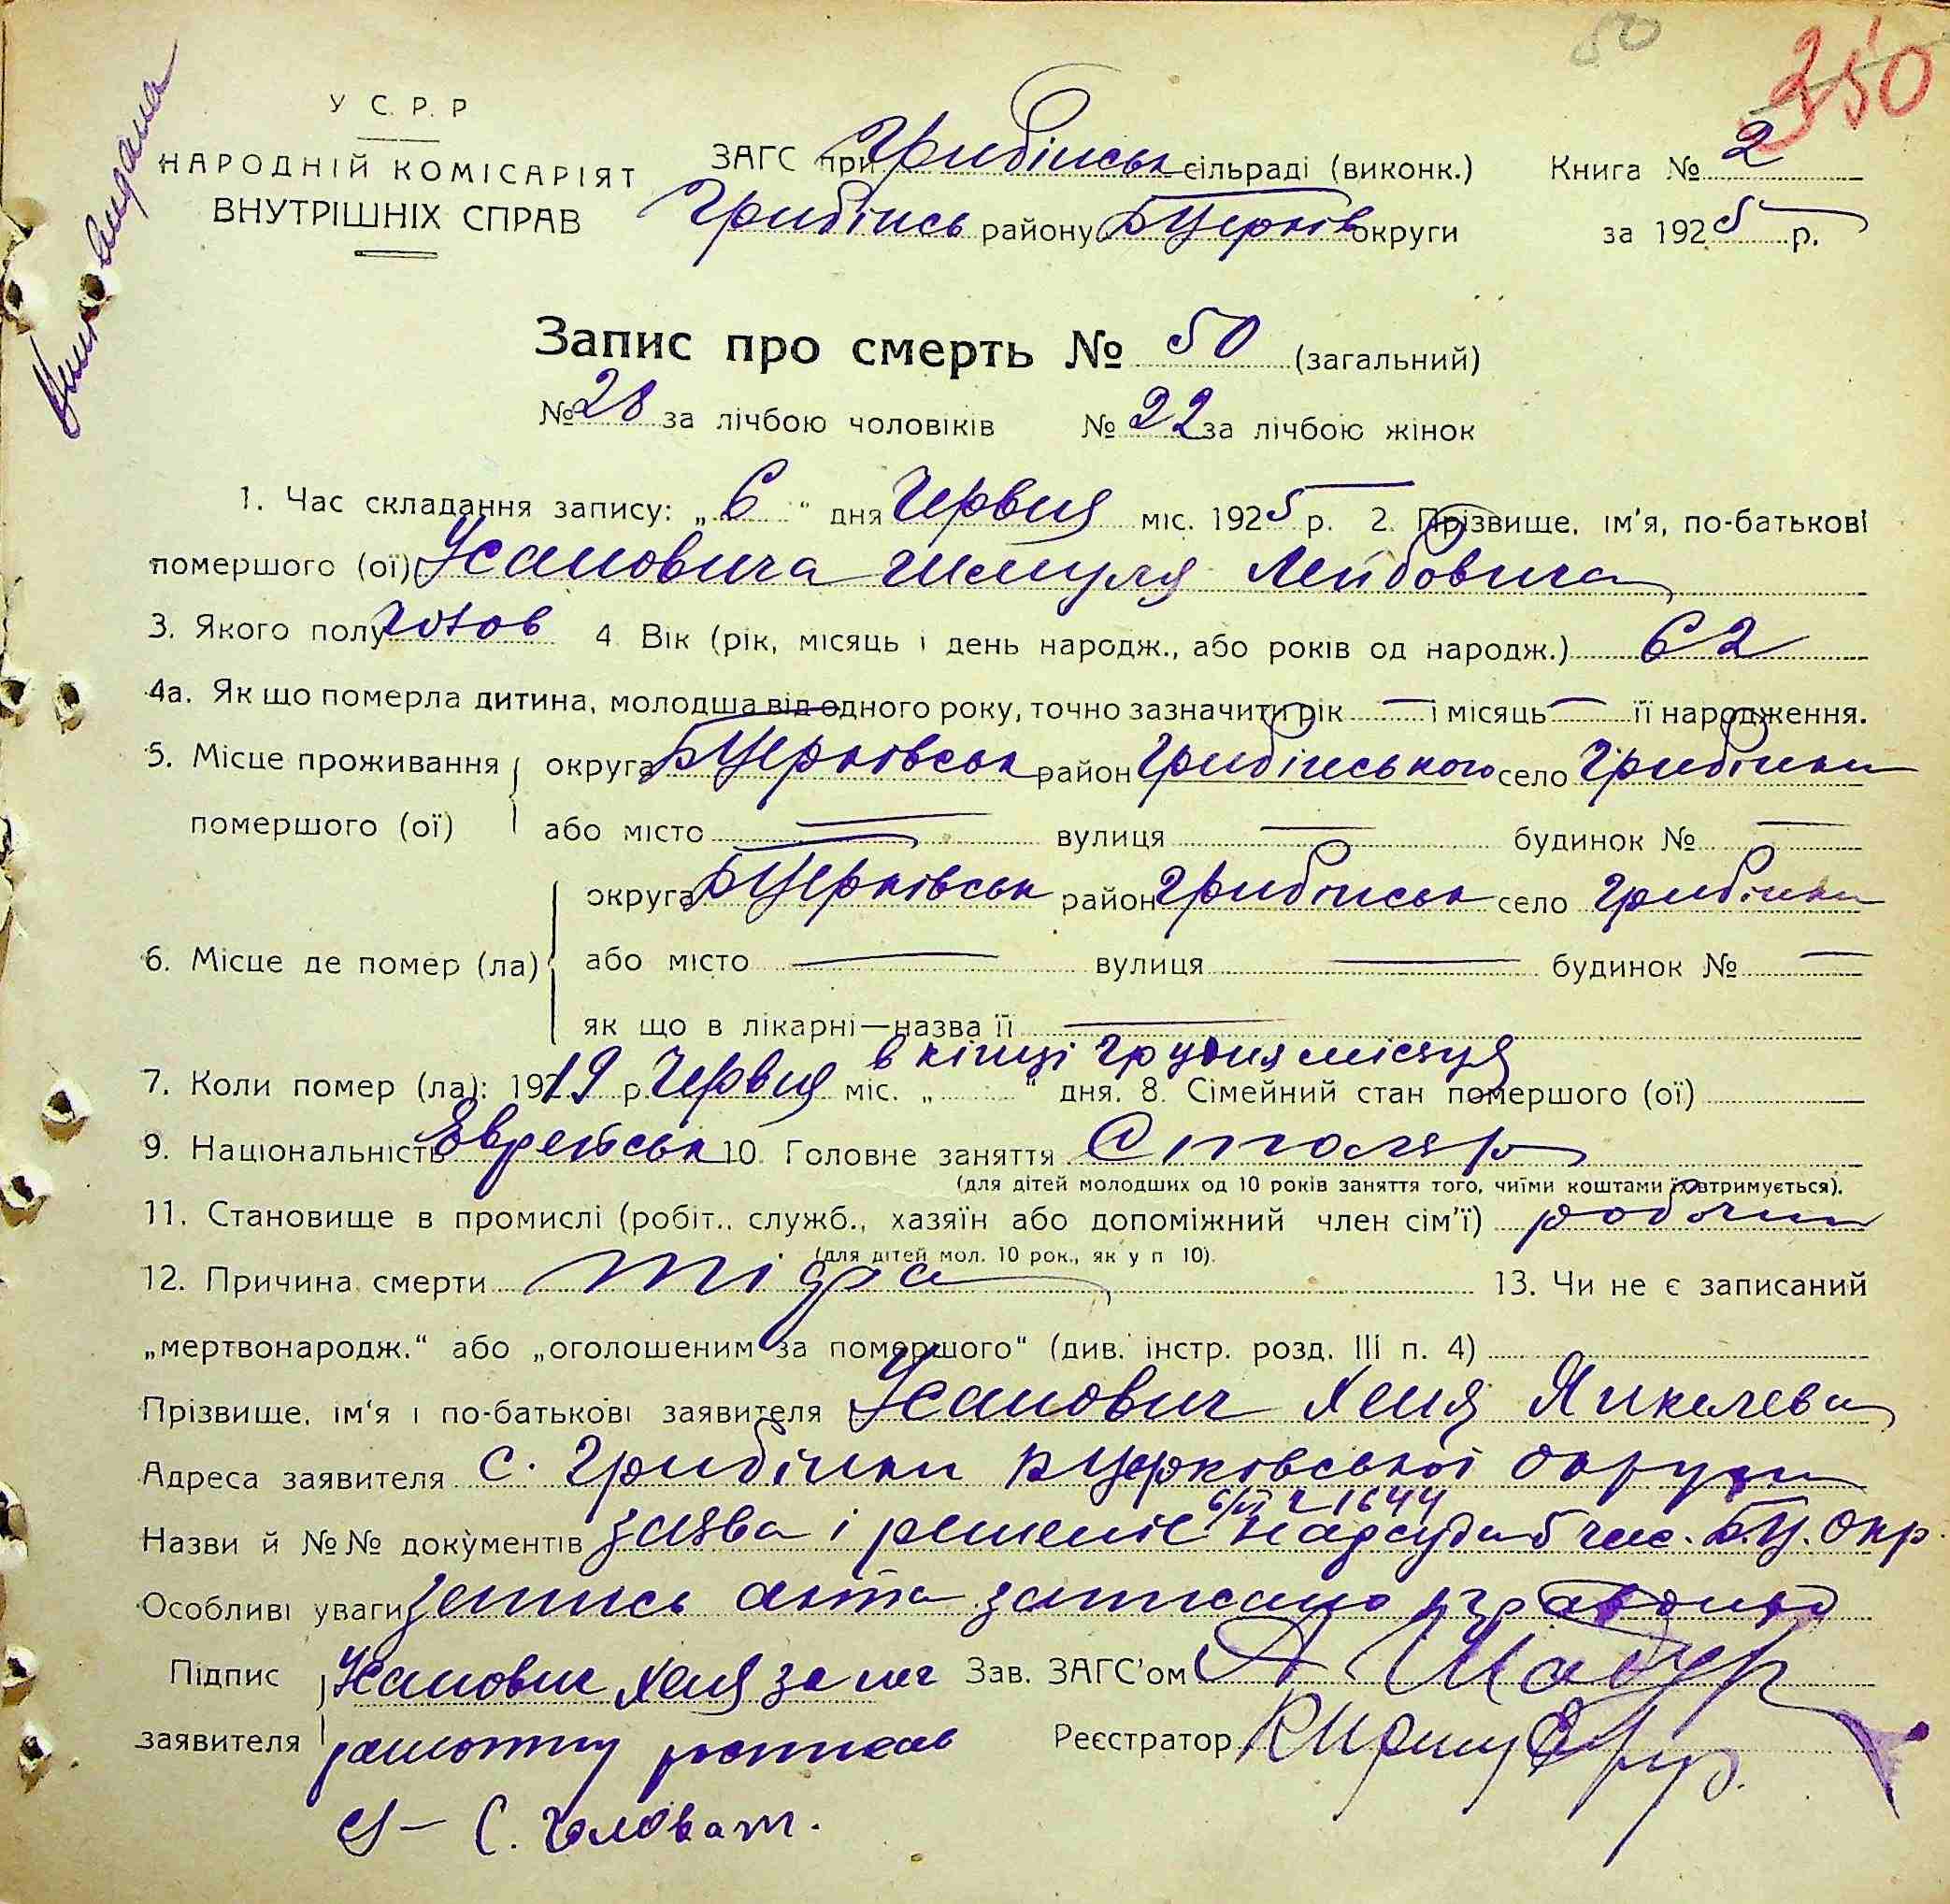 50
350
Випис видана
У С. Р. Р
НАРОДНІЙ КОМІСАРІЯТ
ВНУТРІШНІХ СПРАВ
ЗАГС при Грибінськ сільраді (виконк.)
Грибінсь району БЦерків округи
Книга № 2
за 1925 р.
Запис про смерть № 50 (загальний)
№ 28 за лічбою чоловіків № 22 за лічбою жінок
1. Час складання запису: „6" дня Червня міс. 1925 р. 2. Прізвище, ім'я, по-батькові
помершого (ої) Усановича Шмуля Лейбовича
3. Якого полу чолов 4 Вік (рік, місяць і день народж., або років од народж.) 62
4а. Як що померла дитина, молодша від одного року, точно зазначити рік — і місяць — її народження.
5. Місце проживання помершого (ої)
округа БЦерківськ район Грибінського село Грибінки
або місто — вулиця — будинок № —
6. Місце де помер (ла)
округа БЦерківськ район Грибінськ село Грибінки
або місто — вулиця — будинок № —
як що в лікарні—назва її —
в кінці грудня місяця
7. Коли помер (ла): 1919 р. Червня міс. „ " дня. 8. Сімейний стан помершого (ої)
9. Національність Єврейськ 10. Головне заняття Столяр
(для дітей молодших од 10 років заняття того, чиїми коштами їх втримується).
11. Становище в промислі (робіт., служб., хазяїн або допоміжний член сім'ї) робочий
(для дітей мол. 10 рок., як у п 10).
12. Причина смерти 13. Чи не є записаний
„мертвонародж." або „оголошеним за помершого" (див. інстр. розд. III п. 4)
Прізвище, ім'я і по-батькові заявителя Усанович Хеня Янкелева
Адреса заявителя с. Грибінки БЦерковської округи
6/VI 2 1644
Назви й №№ документів заява і решеніє Нарсуда 5 час. Б.Ц. Окр.
Особливі уваги запись акта записано
Підпис заявителя
Усанович Хеня за не
грамотну росписавс
С. Головат.
Зав. ЗАГС'ом
Реєстратор